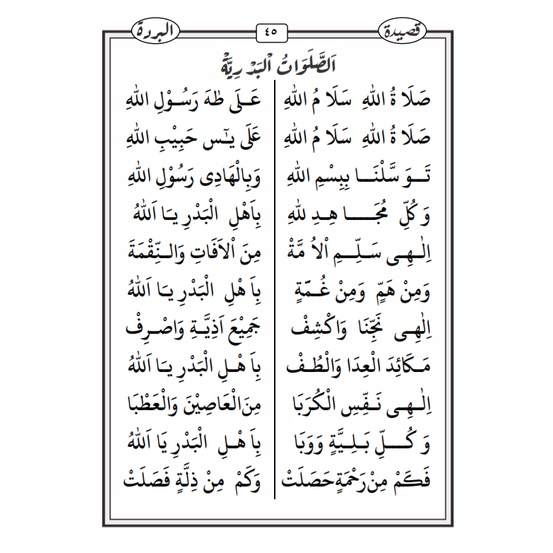 قصيدة ٤٥ البردة
اَلصَّلَوَاتُ الْبَدْرِيَّةْ
صَلَا ةُ اللهِ سَلَا مُ اللهِ عَـلَى طٰهَ رَسُـوْلِ اللهِ
صَلَا ةُ اللهِ سَلَا مُ اللهِ عَلَى يٰـس حَبِيْبِ اللهِ
تَـوَ سَّلْنَـا بِبِسْمِ اللهِ وَبِالْهَادِى رَسُوْلِ اللهِ
وَ كُلِّ مُجَـا هِـدِ للهِ بِاَهْلِ الْبَدْرِ يَـا اَللهُ
اِلٰـهِـى سَـلِّـمِ اْلاُ مَّةْ مِنَ اْلاَفَاتِ وَالنِّقْمَةَ
وَمِنْ هَمٍّ وَمِنْ غُـمَّةٍ بِاَ هْلِ الْبَدْرِ يَـا اَللهُ
اِلٰهِى نَجِّنَا وَاكْشِفْ جَمِيْعَ اَذِيَّـةِ وَاصْـرِفْ
مَـكَائِدَ الْعِدَا وَالْطُـفْ بِاَ هْـلِ الْبَدْرِ يَـا اَللهُ
اِلٰـهِـى نَـفِّسِ الْكُرَبَا مِنَ الْعَاصِيْنَ وَالْعَطْبَا
وَ كُــلِّ بَـلِـيَّةٍ وَوَبَا بِاَ هْـلِ الْبَدْرِ يَا اَللهُ
فَكَمْ مِنْ رَحْمَةٍ حَصَلَتْ وَكَمْ مِنْ ذِلَّةٍ فَصَلَتْ